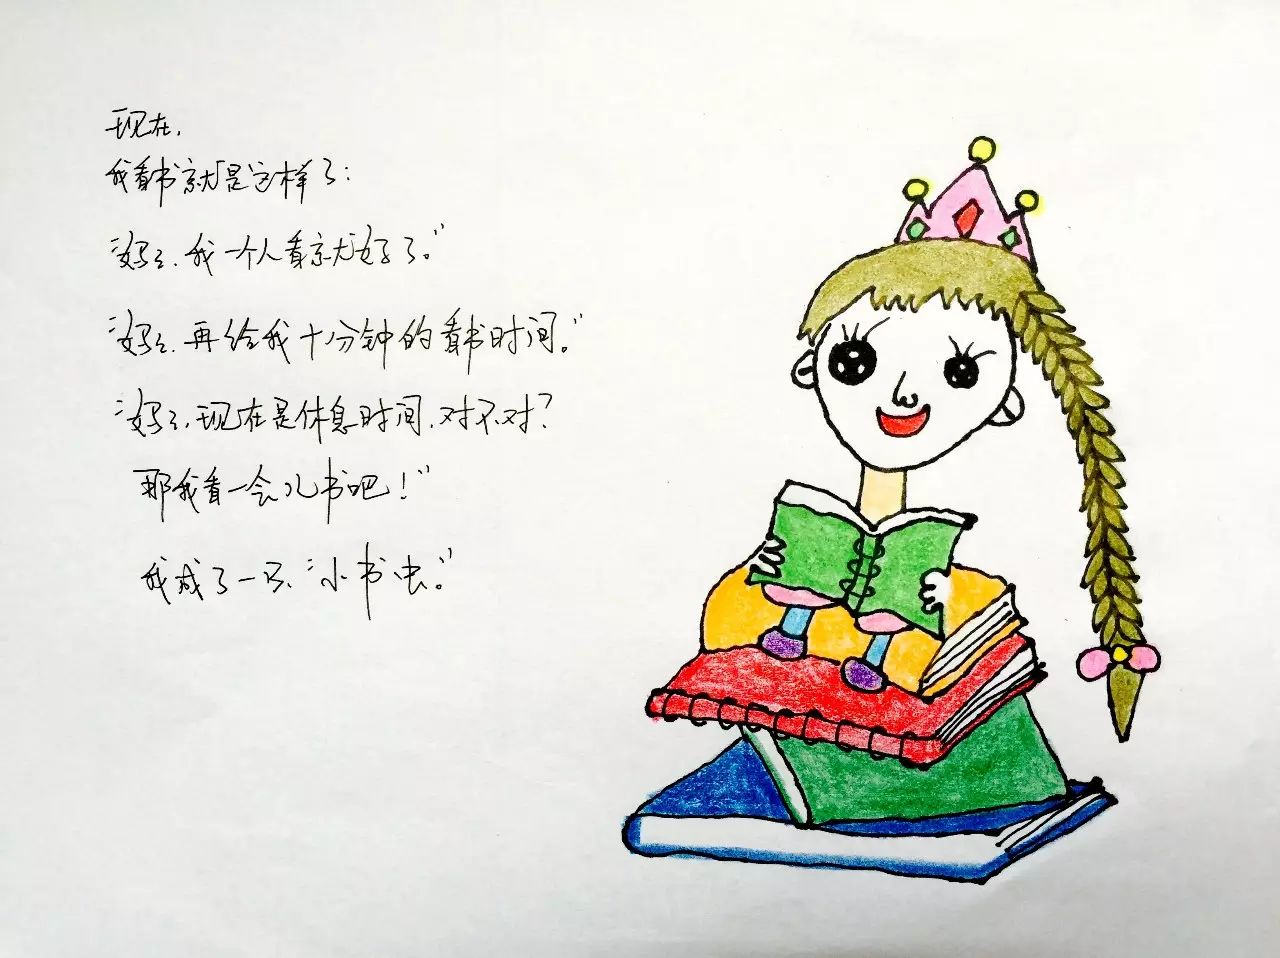 现在，
我看书就是这样了：
“妈妈，我一个人看就好了。”
“妈妈，再给我十分钟的看书时间。”
“妈妈，现在是休息时间，对不对？
那我看一会儿书吧！”
我成了一只“小书虫。”